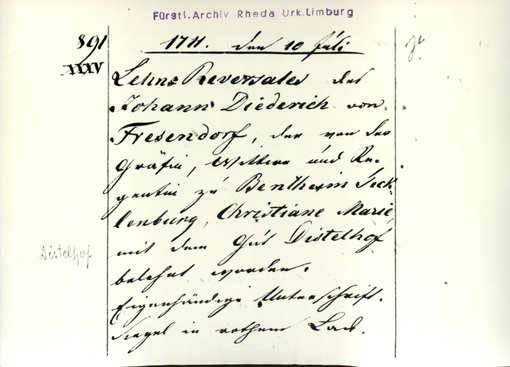 Fürstl. Archiv Rheda Urk. Limburg
891
XXXV
1711. den 10 Juli
Jh
Lehns Reversales des
Johann Diederich von
Fresendorf, der von der
Gräfin, Wittwe und Re-
gentin zu Bentheim Teck-
lenburg, Christiane Marie,
mit dem Gut Distelhof
Distelhof
belehnt worden.
Eigenhändige Unterschrift.
Siegel in rothem Lack.